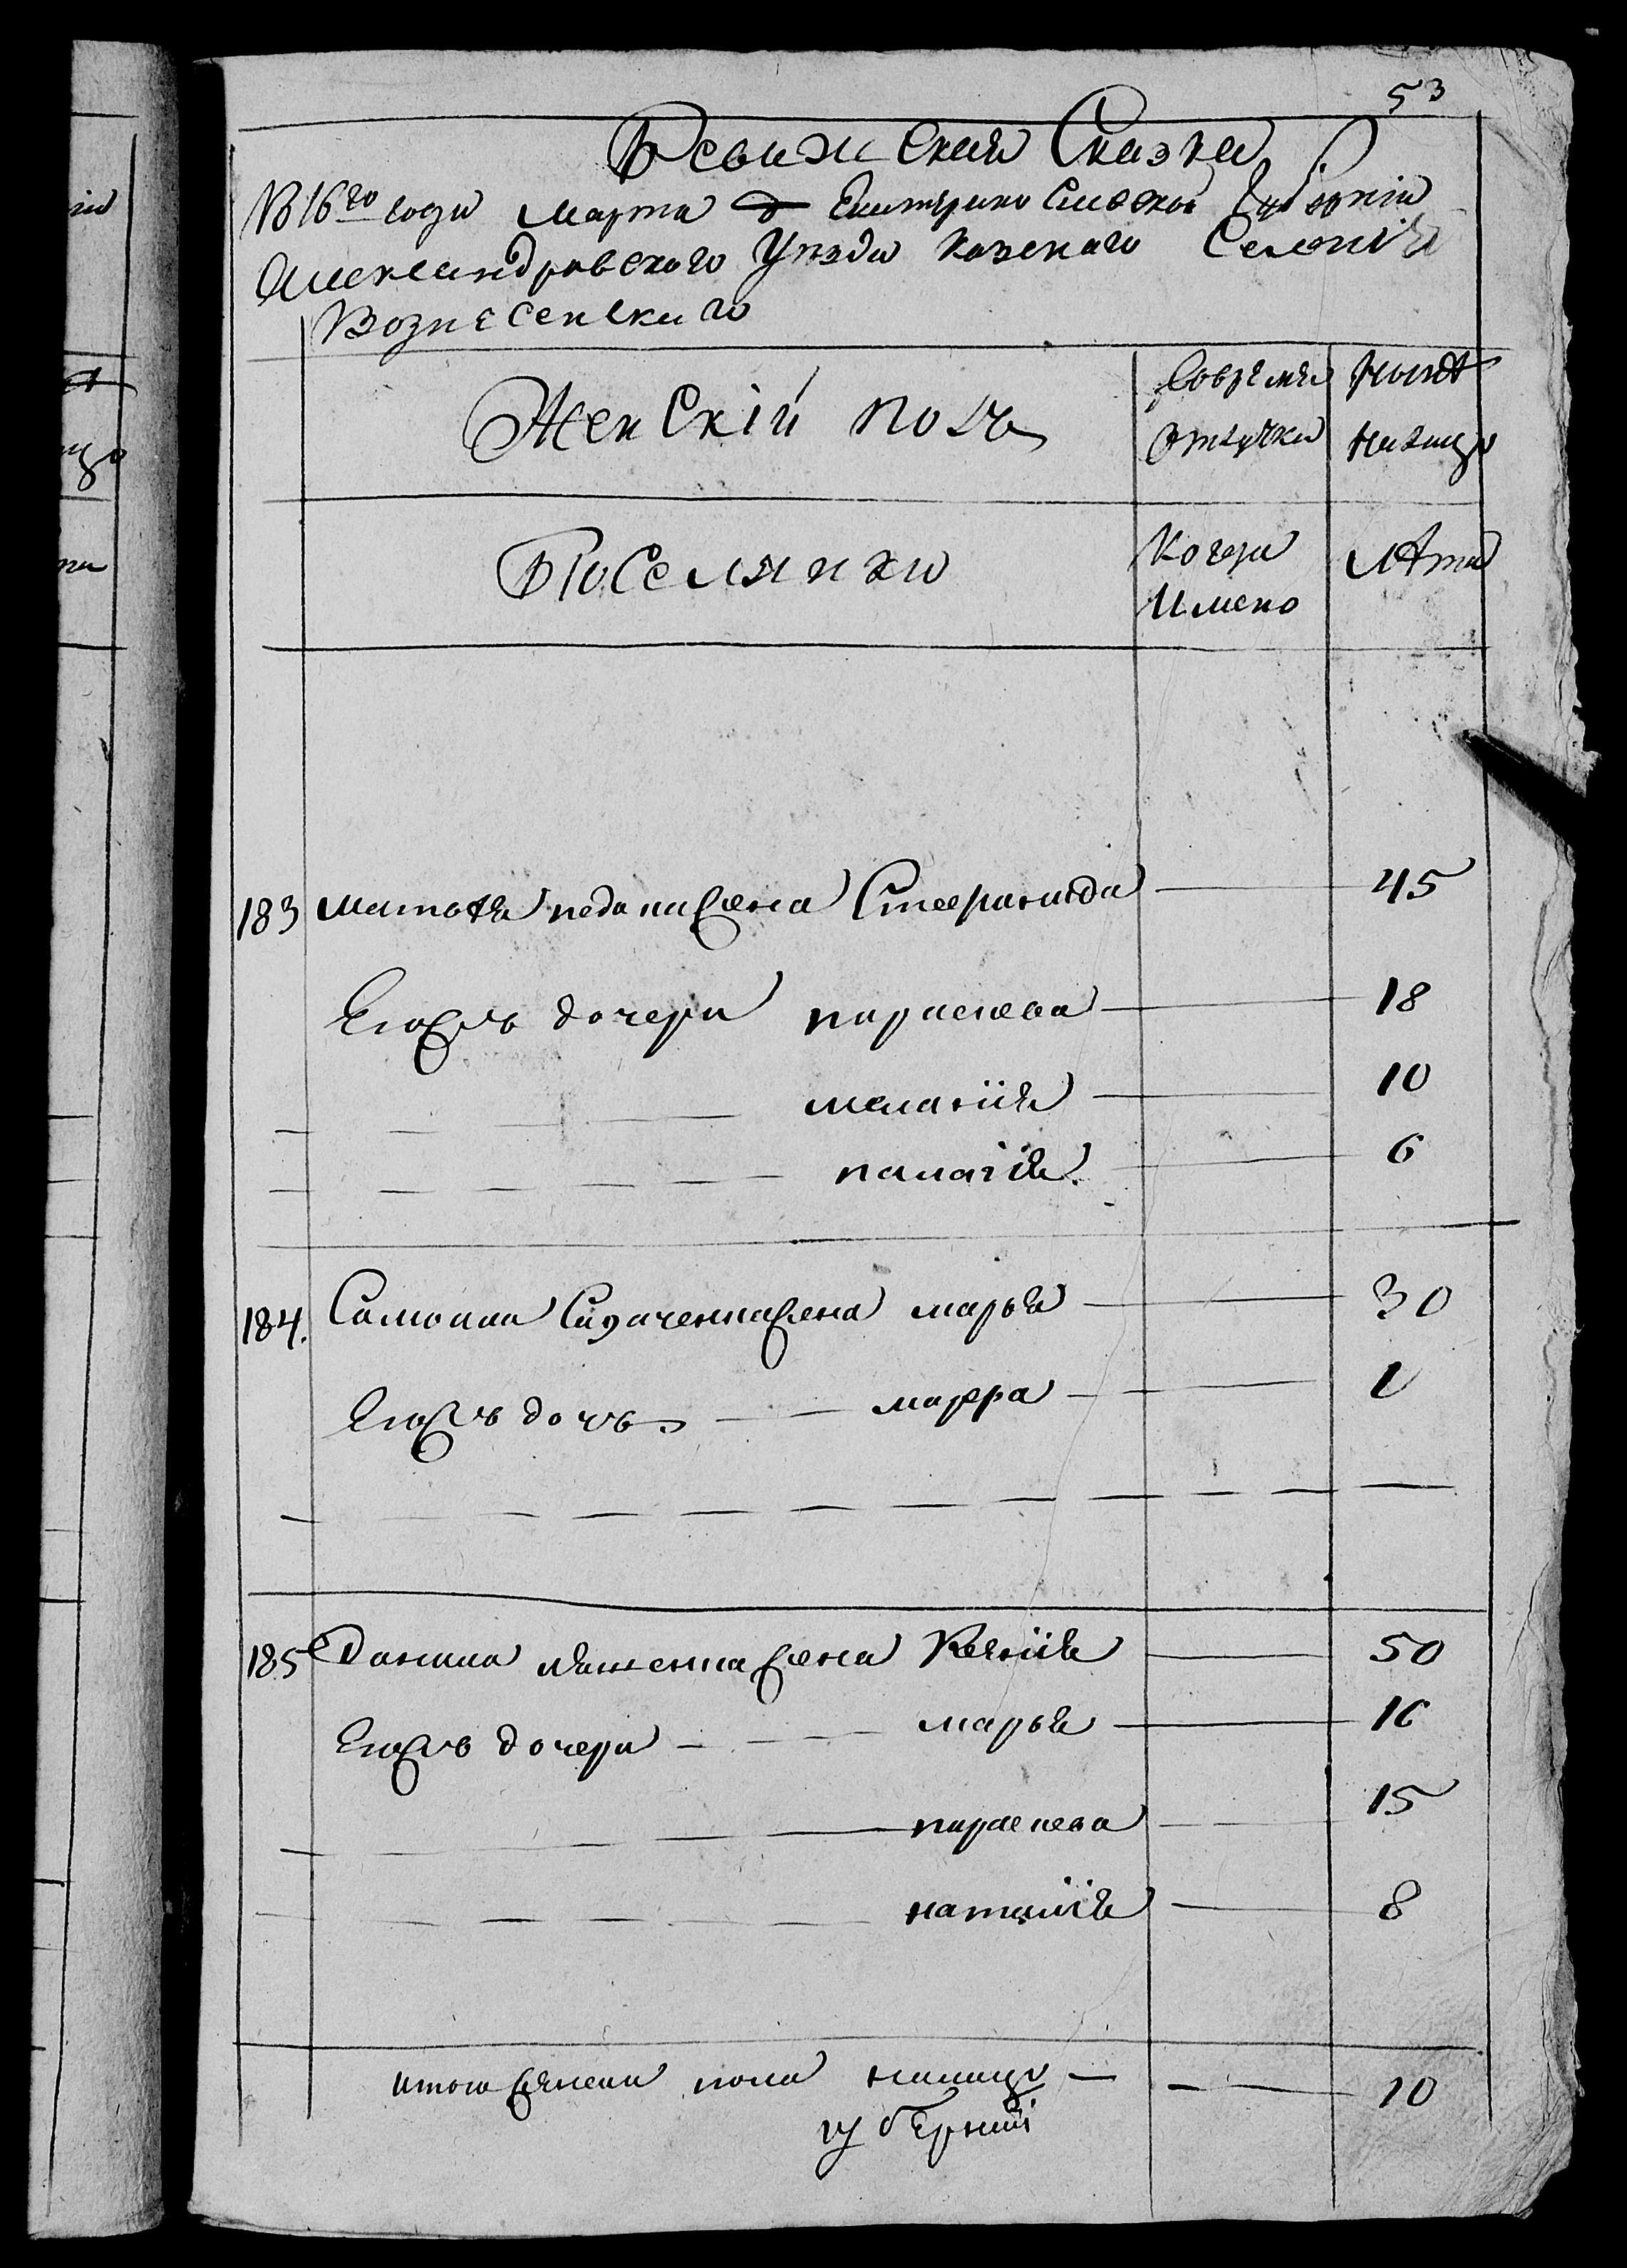 53
Ревижская Сказка
1816го года марта д Екатериносласкои Губернiи
Александровского Уезда Казенаго Селенiя
Вознесенскаго
Женскiй полъ
Современи отлучки
Ныне налицо
Поселянки
Которы Имено
лета
183 Матвея недо жена Стефанида 45
Егожъ дочери параскева 18
меланiя 10
палагiя 6
184. Самоила жена марья 30
Егожъ дочь марфа 1
185 Данила жена Ксенiя 50
Егожъ дочери марья 16
параскева 15
наталiя 8
итого женска пола налицо 10
губернии